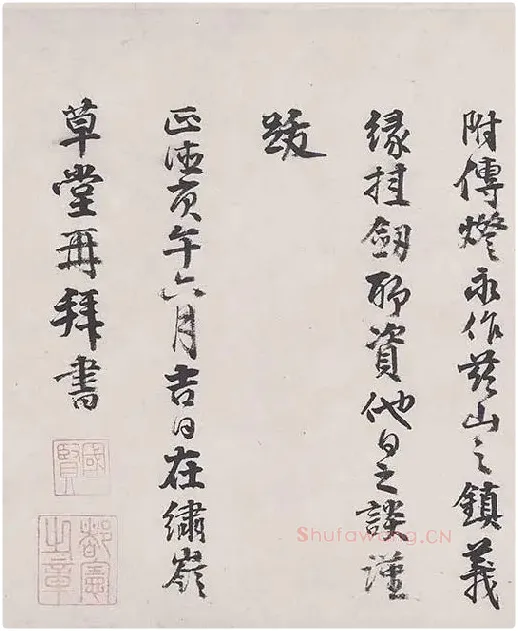 附傳燈永作茲山之鎮義
緣挂劔聊資他日之談謹
跋
正德庚午六月吉日在繡嶺
草堂再拜書
國賢
都憲之章
Shufawang.CN